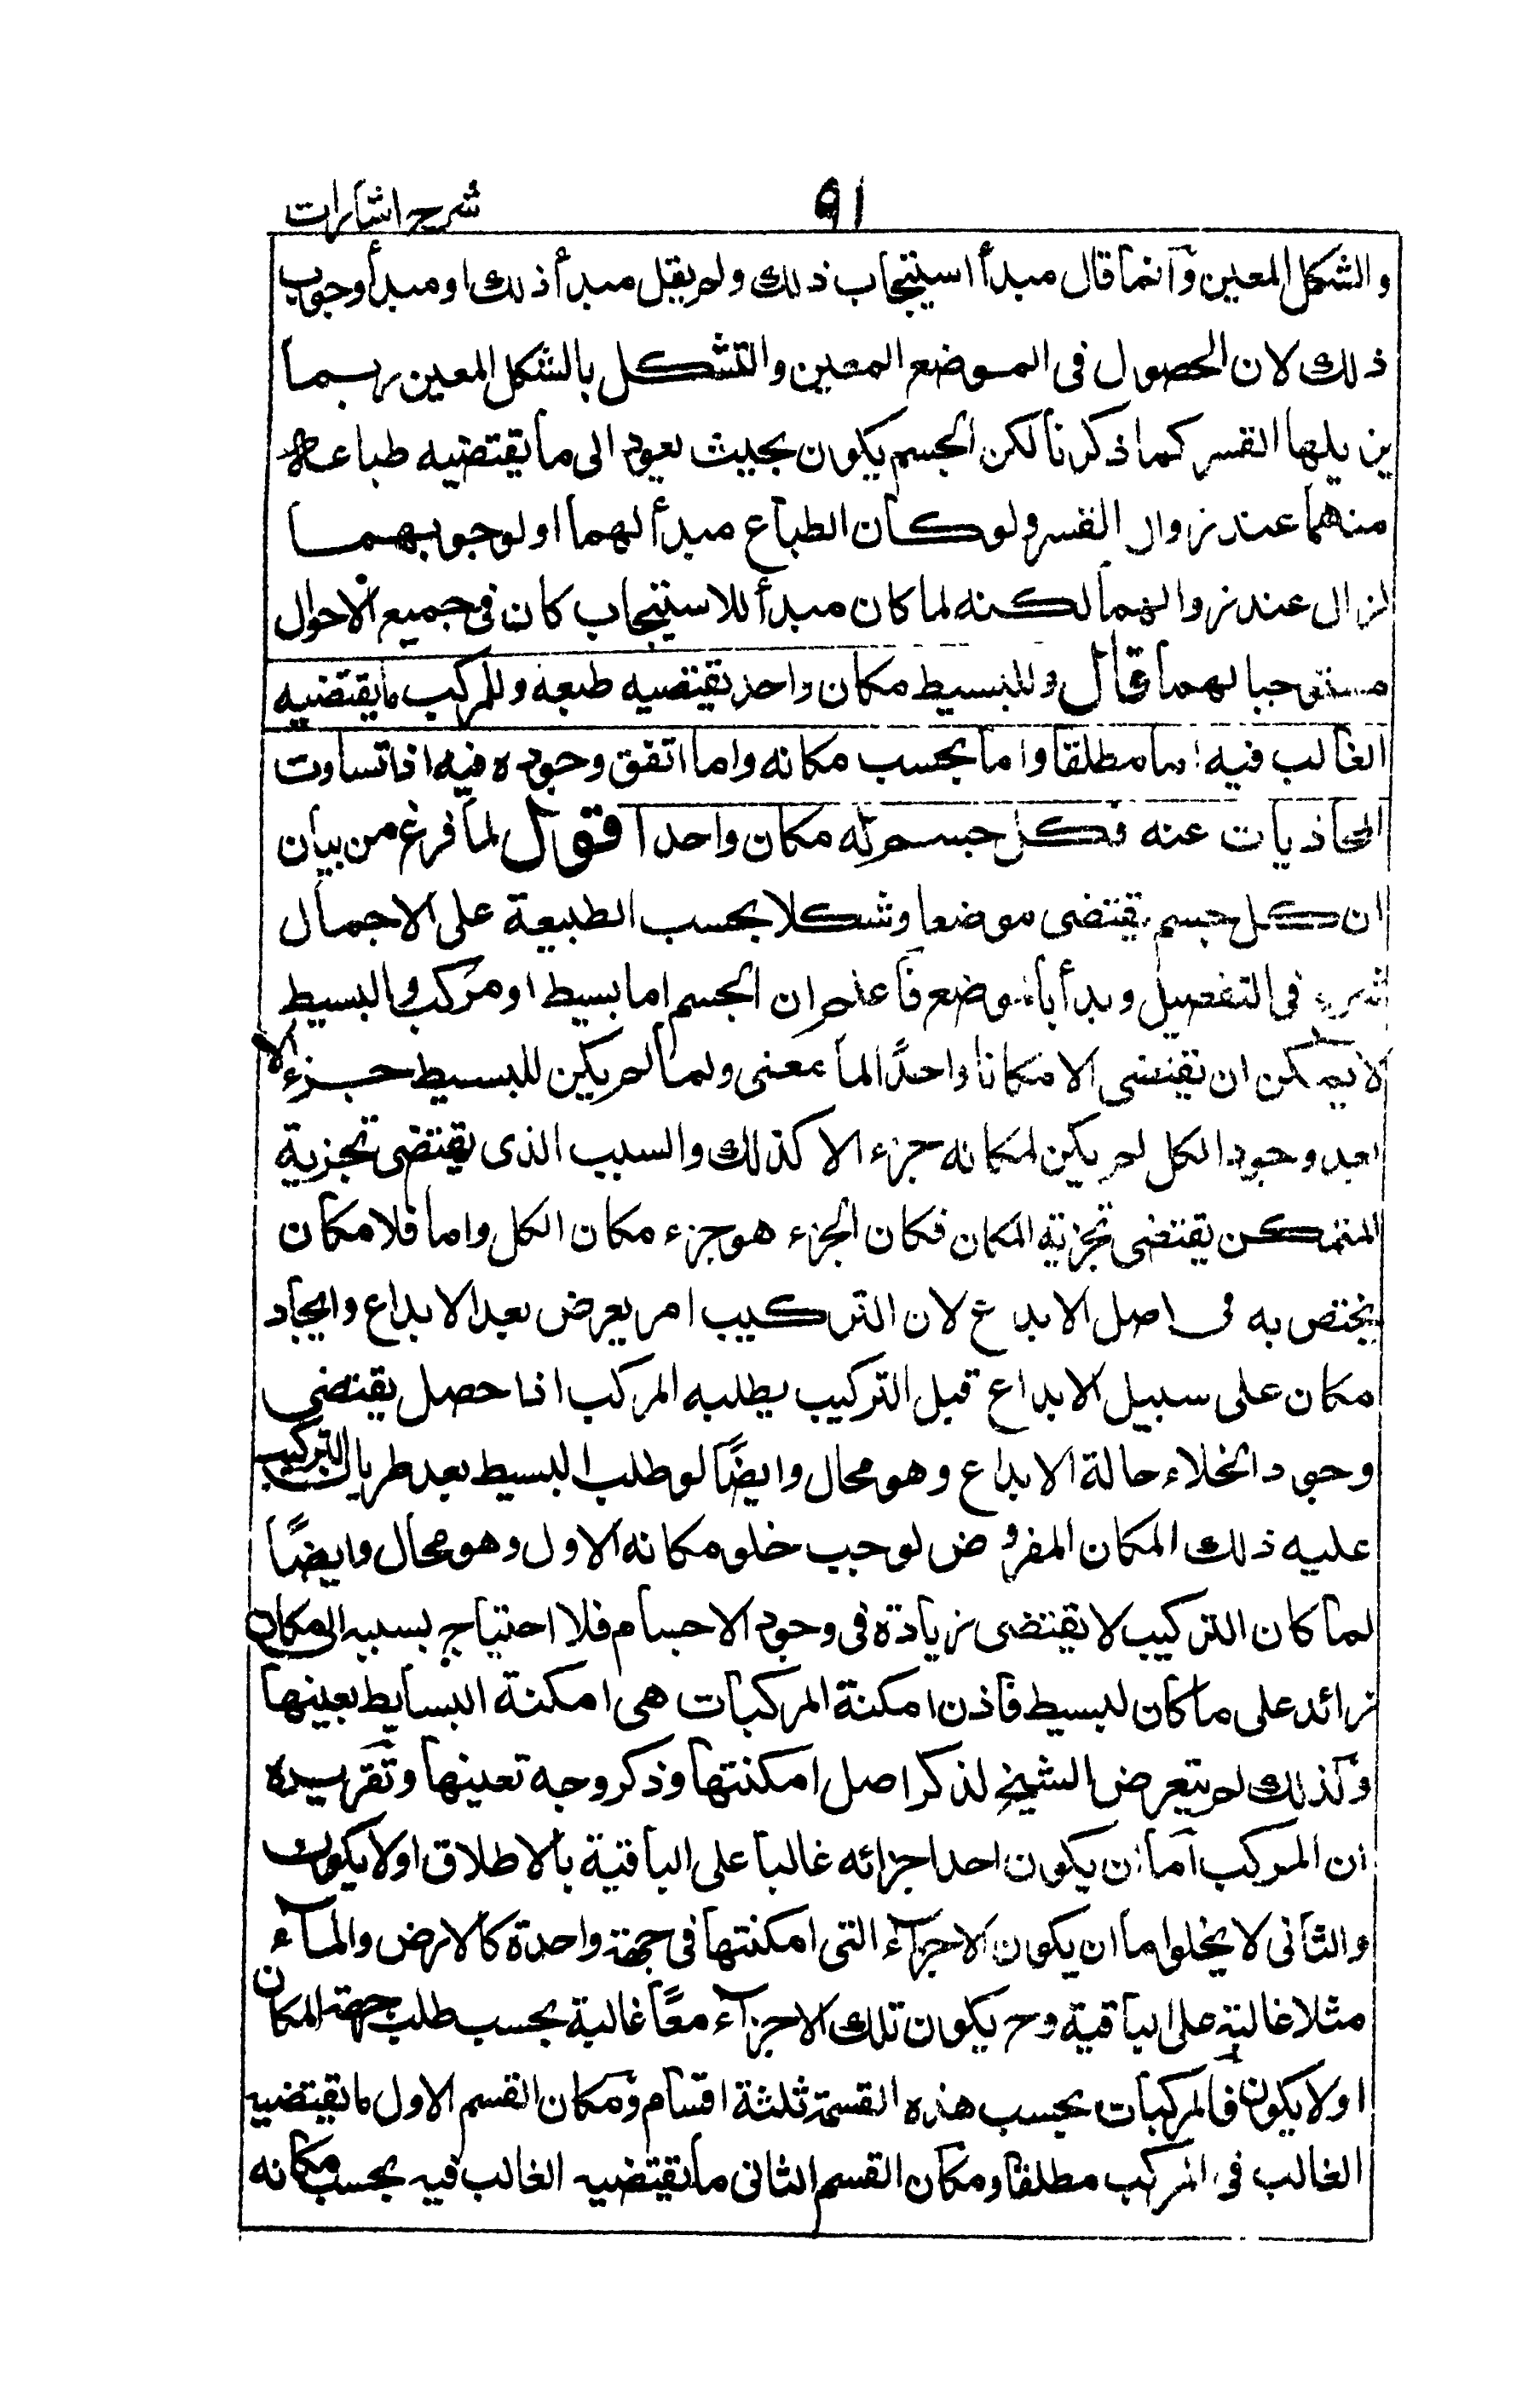 ٩١
شرح اشارات
والشكل المعين وانما قال مبدأ استيجاب ذلك ولم يقل مبدأ ذلك او مبدأ وجوب
ذلك لان الحصول فى الموضع المعين والتشكل بالشكل المعين ربما
يزيلها القسر كما ذكرنا لكن الجسم يكون بحيث يعود الى ما يقتضيه طباعه
منهما عند زوال القسر ولو كان الطباع مبدأ لهما او لوجوبهما
لزال عند زوالهما لكنه لما كان مبدأ للاستيجاب كان فى جميع الاحوال
مستوجبا لهما قال وللبسيط مكان واحد يقتضيه طبعه وللمركب ما يقتضيه
الغالب فيه اما مطلقا واما بحسب مكانه واما اتفق وجوده فيه اذا تساوت
المحاذيات عنه فكل جسم له مكان واحد اقول لما فرغ من بيان
ان كل جسم يقتضى موضعا وشكلا بحسب الطبيعة على الاجمال
شرع فى التفصيل وبدأ بالموضع فاعلم ان الجسم اما بسيط او مركب والبسيط
لا يمكن ان يقتضى الا مكانا واحدًا لما معنى ولما لم يكن للبسيط جزء الا
بعد وجود الكل لم يكن لمكانه جزء الا كذلك والسبب الذى يقتضى تجزية
المتمكن يقتضى تجزية المكان فكان الجزء هو جزء مكان الكل واما فلا مكان
يختص به فى اصل الابداع لان التركيب امر يعرض بعد الابداع وايجاد
مكان على سبيل الابداع قبل التركيب يطلبه المركب اذا حصل يقتضى
وجود الخلاء حالة الابداع وهو محال وايضًا لو طلب البسيط بعد طريان التركيب
عليه ذلك المكان المفروض لوجب خلو مكانه الاول وهو محال وايضًا
لما كان التركيب لا يقتضى زيادة فى وجود الاجسام فلا احتياج بسببه الى مكان
زائد على ما كان للبسيط فاذن امكنة المركبات هى امكنة البسايط بعينها
وكذلك لم يتعرض الشيخ لذكر اصل امكنتها وذكر وجه تعينها وتقريره
ان المركب اما ان يكون احد اجزائه غالبا على الباقية بالاطلاق او لا يكون
والثانى لا يخلو اما ان يكون الاجزآء التى امكنتها فى جهة واحدة كالارض والمآء
مثلا غالبة على الباقية وح يكون تلك الاجزآء معًا غالبة بحسب طلب جهة المكان
او لا يكون فالمركبات بحسب هذه القسمة ثلثة اقسام ومكان القسم الاول ما يقتضيه
الغالب فى المركب مطلقا ومكان القسم الثانى ما يقتضيه الغالب فيه بحسب مكانه